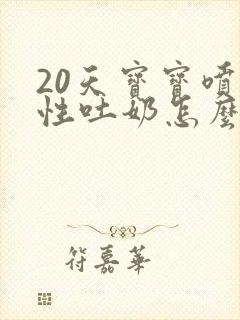 20天寶寶噴
性吐奶怎麼
符嘉華